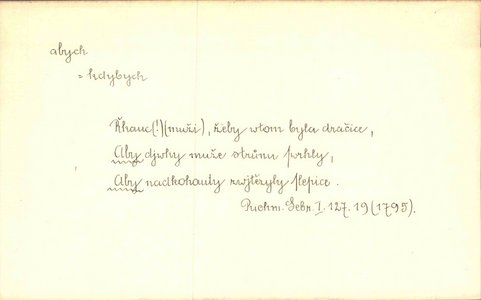 abych
= kdybych
Řkauc(!)(muži), žeby wtom byla dračice,
Aby djwky muže strůnu prhly,
Aby nadkohauty zwjtězyly slepice.
Puchm. Sebr. I. 127. 19 (1795).